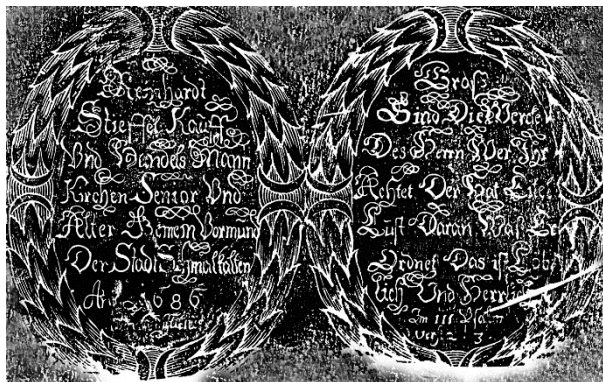 Reinhardt
Stieffel Kauff
Vnd Handels Mann
Kirchen Senior Vnd
Alter Gemein Vormund
Der Stadt Schmalkalten
Ao 1686
Groß
Sind Die Wercke
Des Herrn Wer Ihr
Achtet Der Hat Eitel
Lust Daran Was Er
Ordnet Das ist Löb
lich Und Herrlich
Im 111 Psalm
Ver: 2 3